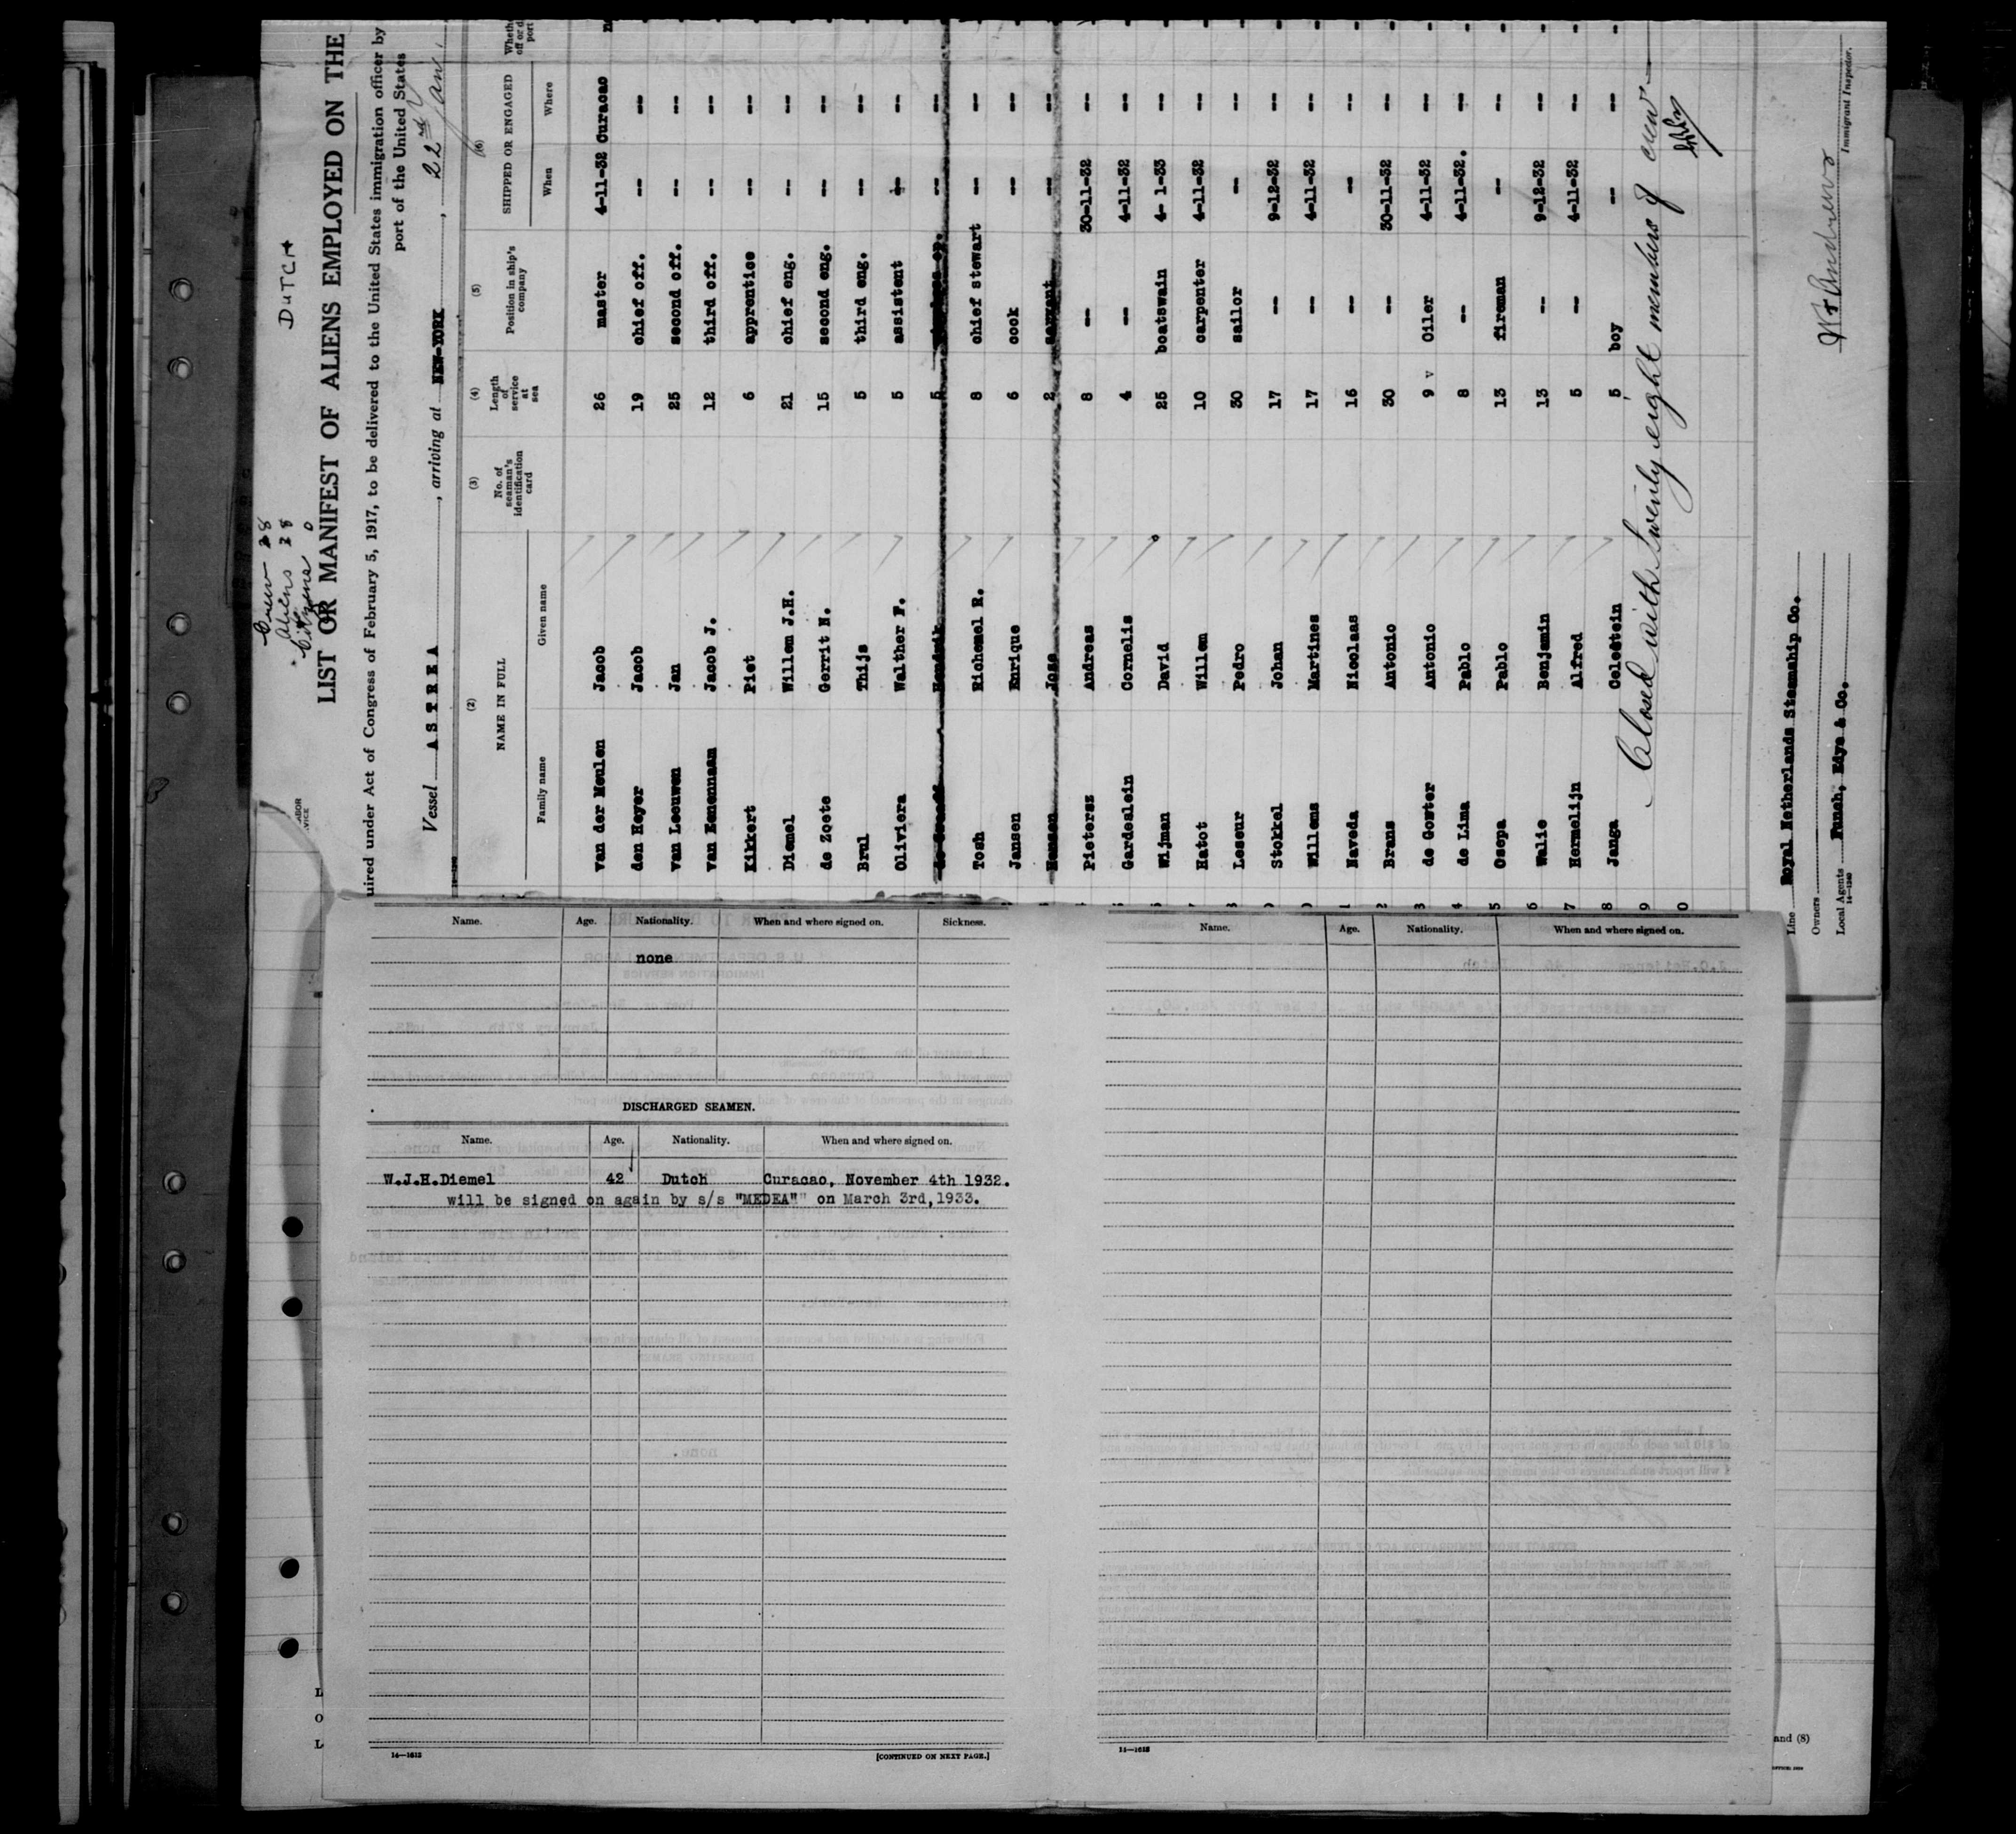 DUTCH
Crew 28
Aliens 28
Citizens 0
LIST OR MANIFEST OF ALIENS EMPLOYED ON THE
uired under Act of Congress of February 5, 1917, to be delivered to the United States immigration officer by
port of the United States
Vessel ASTREA, arriving at NEW-YORK, 22nd Jan.
(2) (3) (4) (5) (6)
NAME IN FULL No. of seaman's identification card Length of service at sea Position in ship's company SHIPPED OR ENGAGED
Family name Given name When Where
van der Meulen Jacob 26 master 4-11-32 Curacao
den Heyer Jacob 19 chief off. -- --
van Leeuwen Jan 25 second off. -- --
van Eenennaam Jacob J. 12 third off. -- --
Kikkert Piet 6 apprentice -- --
Diemel Willem J.H. 21 chief eng. -- --
de Zoete Gerrit N. 15 second eng. -- --
Brul Thijs 5 third eng. -- --
Oliviera Walther F. 5 assistent -- --
Hendrik 5 -- --
Tosh Richemel R. 8 chief stewart -- --
Jansen Enrique 6 cook -- --
Jose 2 servant -- --
Pietersz Andreas 8 -- 30-11-32 --
Gardealein Cornelis 4 -- 4-11-32 --
Wijman David 25 boatswain 4- 1-33 --
Hatot Willem 10 carpenter 4-11-32 --
Leseur Pedro 30 sailor -- --
Stokkel Johan 17 -- 9-12-32 --
Willems Martines 17 -- 4-11-32 --
Naveda Nicolaas 16 -- -- --
Brans Antonio 30 -- 30-11-32 --
de Goster Antonio 9 v Oiler 4-11-32 --
de Lima Pablo 8 -- 4-11-32. --
Osepa Pablo 13 fireman -- --
Walie Benjamin 13 -- 9-12-32 --
Hermelijn Alfred 5 -- 4-11-32 --
Janga Celestein 5 boy -- --
Closed with twenty eight members of crew
Line Royal Netherlands Steamship Co.
Owners
Local Agents Funch, Edye & Co.
14-1240
Immigrant Inspector.
Name. Age. Nationality. When and where signed on. Sickness.
none
DISCHARGED SEAMEN.
Name. Age. Nationality. When and where signed on.
W.J.H.Diemel 42 Dutch Curacao, November 4th 1932.
will be signed on again by s/s "MEDEA" on March 3rd,1933.
14-1612 [CONTINUED ON NEXT PAGE.]
Name. Age. Nationality. When and where signed on.
14-1612
and (8)